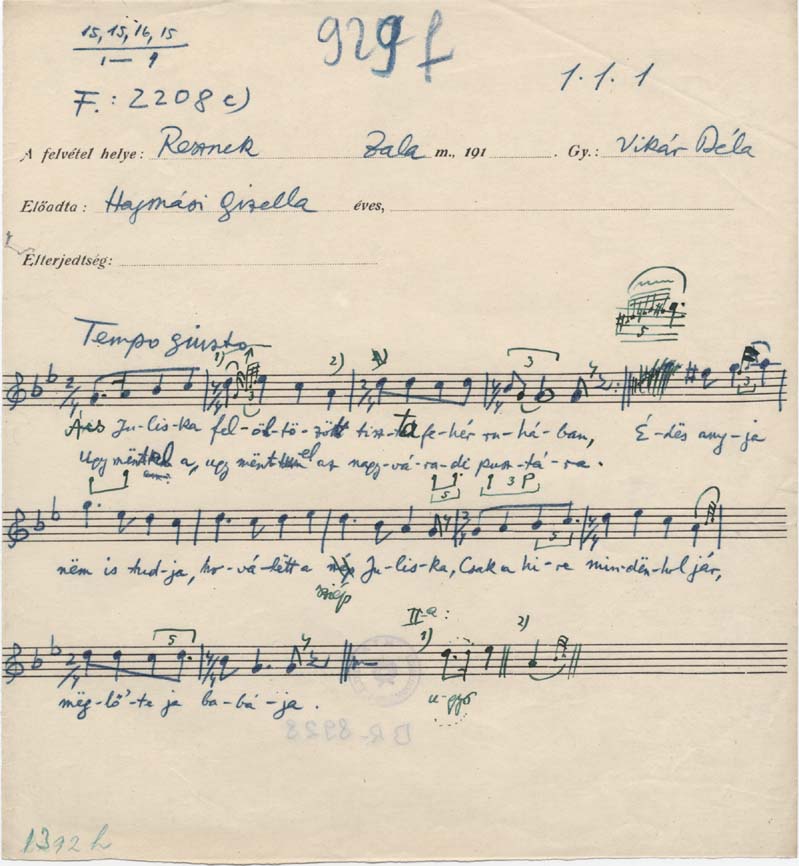 15, 15, 16, 15
1 — 9
929 f
1. 1. 1
F.: 2208 c)
A felvétel helye: Resznek Zala m., 191 . Gy.: Vikár Béla
Előadta: Hajmási Gizella éves,
Elterjedtség:
Tempo giusto
1) 2) 3
5
Ju-lis-ka fel-öl-tö-zött tisz-ta fe-hér ru-há-ban, É-dës any-ja
Ugy mënt el a, ugy mënt el az nagy-vá-ra-di pusz-tá-ra.
5 3
nëm is tud-ja, ho-vá-lëtt a szép Ju-lis-ka, Csak a hi-re min-dën-hol jár,
5
IIa: 1) 2)
mëg-lő'-te ja ba-bá-ja. u-gyö
BR-8928
1392 h